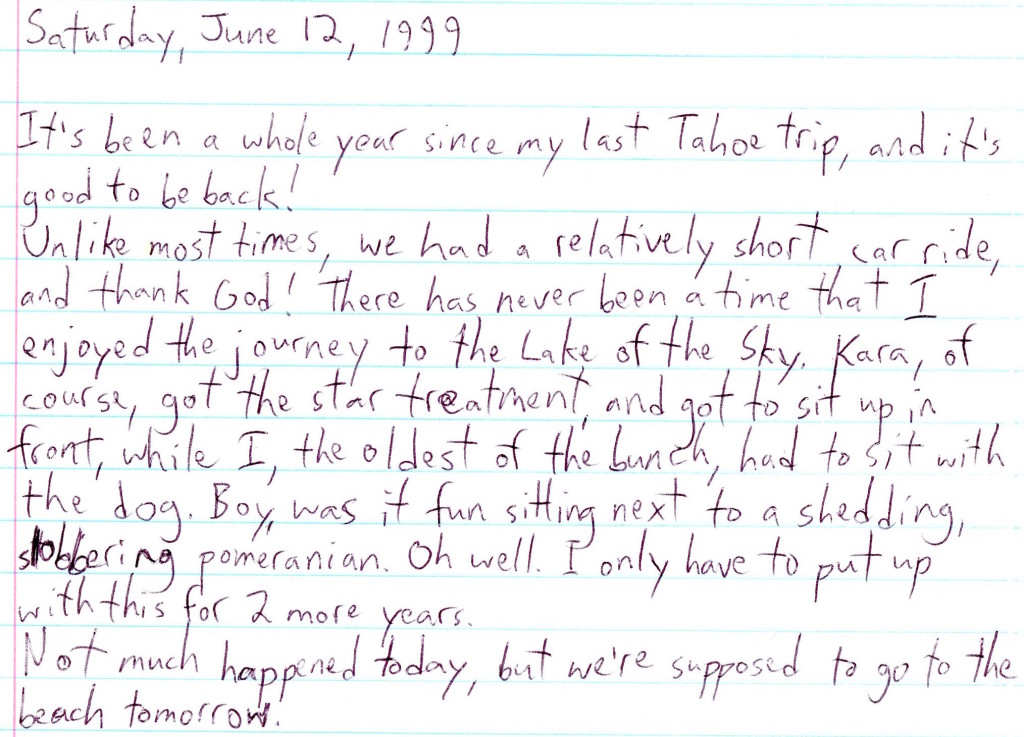 Saturday, June 12, 1999
It's been a whole year since my last Tahoe trip, and it's
good to be back!
Unlike most times, we had a relatively short car ride,
and thank God! There has never been a time that I
enjoyed the journey to the Lake of the Sky. Kara, of
course, got the star treatment, and got to sit up in
front, while I, the oldest of the bunch, had to sit with
the dog. Boy, was it fun sitting next to a shedding,
slobbering pomeranian. Oh well. I only have to put up
with this for 2 more years.
Not much happened today, but we're supposed to go to the
beach tomorrow.